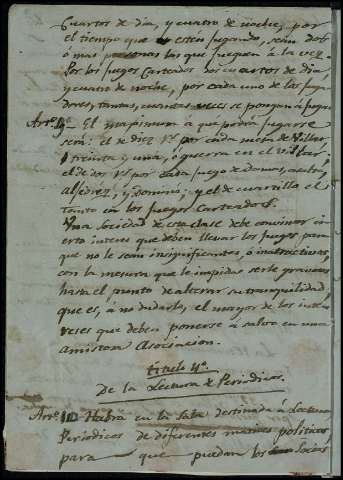 Cuartos de dia, y cuatro de noche, por
el tiempo que esten jugando, sean dos
ó mas personas las que jueguen á la vez.
Por los juegos Carteados dos cuartos de dia,
y cuatro de noche, por cada uno de los juga-
dores, tantas, cuantas veces se pongan á jugar
Arto. 9º El maximum á que podrá jugarse
será: el de diez rs. por cada mesa de Villar,
treinta y una, ó guerra en el villar,
el de dos rs. por cada juego de Damas,
aljedrez, y Dominó; y el de cuartillo el
tanto en los juegos Carteados.
Una Sociedad de esta clase debe convinar cier-
to interes que deben llevar los juegos para
que no le sean insignificantes, ó inatractivos,
con la mesura que le impida serle gravosos
hasta el punto de alterar su tranquilidad,
que es, á no dudarlo, el mayor de los inte-
reses que deben ponerse á salvo en una
amistosa Asociacion.
Titulo 4º.
De la Lectura de Periodicos.
Arto. 10 Habrá en la Sala destinada á Lectura
Periodicos de diferentes matices politicos,
para que puedan los Socios